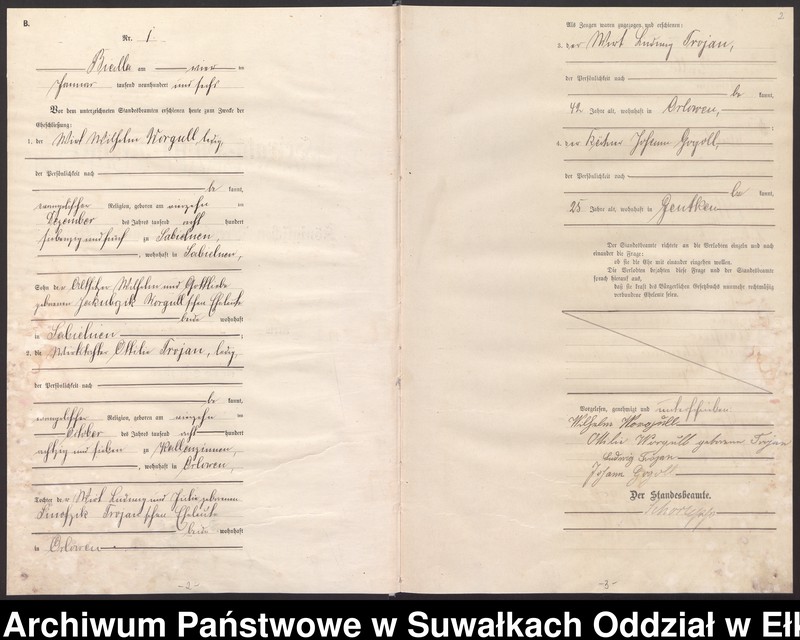 B.
Nr. 1
Bialla am vier ten
Januar tausend neunhundert und sechs
Vor dem unterzeichneten Standesbeamten erschienen heute zum Zwecke der
Eheschließung:
1. der Wirt Wilhelm Worgull, ledig,
der Persönlichkeit nach
be kannt,
evangelischer Religion, geboren am
Dezember des Jahres tausend acht hundert
siebenzig und fünf zu Sabielnen,
, wohnhaft in Sabielnen,
Sohn der Wilhelm und Gottliebe
geborenen Jakubzik Worgull'schen Eheleute
beide wohnhaft
in Sabielnen
2. die Wirtstochter Ottilie Trojan, ledig,
der Persönlichkeit nach
be kannt,
evangelischer Religion, geboren am
October des Jahres tausend acht hundert
achtzig und sieben zu Kallenzinnen,
, wohnhaft in Orlowen,
Tochter der Wirt Ludwig und geborenen
Trojan'schen Eheleute
beide wohnhaft
in Orlowen
-2-
2
Als Zeugen waren zugezogen und erschienen:
3. der Wirt Ludwig Trojan,
der Persönlichkeit nach
be kannt,
42 Jahre alt, wohnhaft in Orlowen,
4. der Johann Gogoll,
der Persönlichkeit nach
be kannt,
25 Jahre alt, wohnhaft in Gentken
Der Standesbeamte richtete an die Verlobten einzeln und nach
einander die Frage:
ob sie die Ehe mit einander eingehen wollen.
Die Verlobten bejahten diese Frage und der Standesbeamte
sprach hierauf aus,
daß sie kraft des Bürgerlichen Gesetzbuchs nunmehr rechtmäßig
verbundene Eheleute seien.
Vorgelesen, genehmigt und unterschrieben
Wilhelm Worgull
Ottilie Worgull geborene Trojan
Ludwig Trojan
Johann Gogoll
Der Standesbeamte.
-3-
Archiwum Państwowe w Suwałkach Oddział w Eł